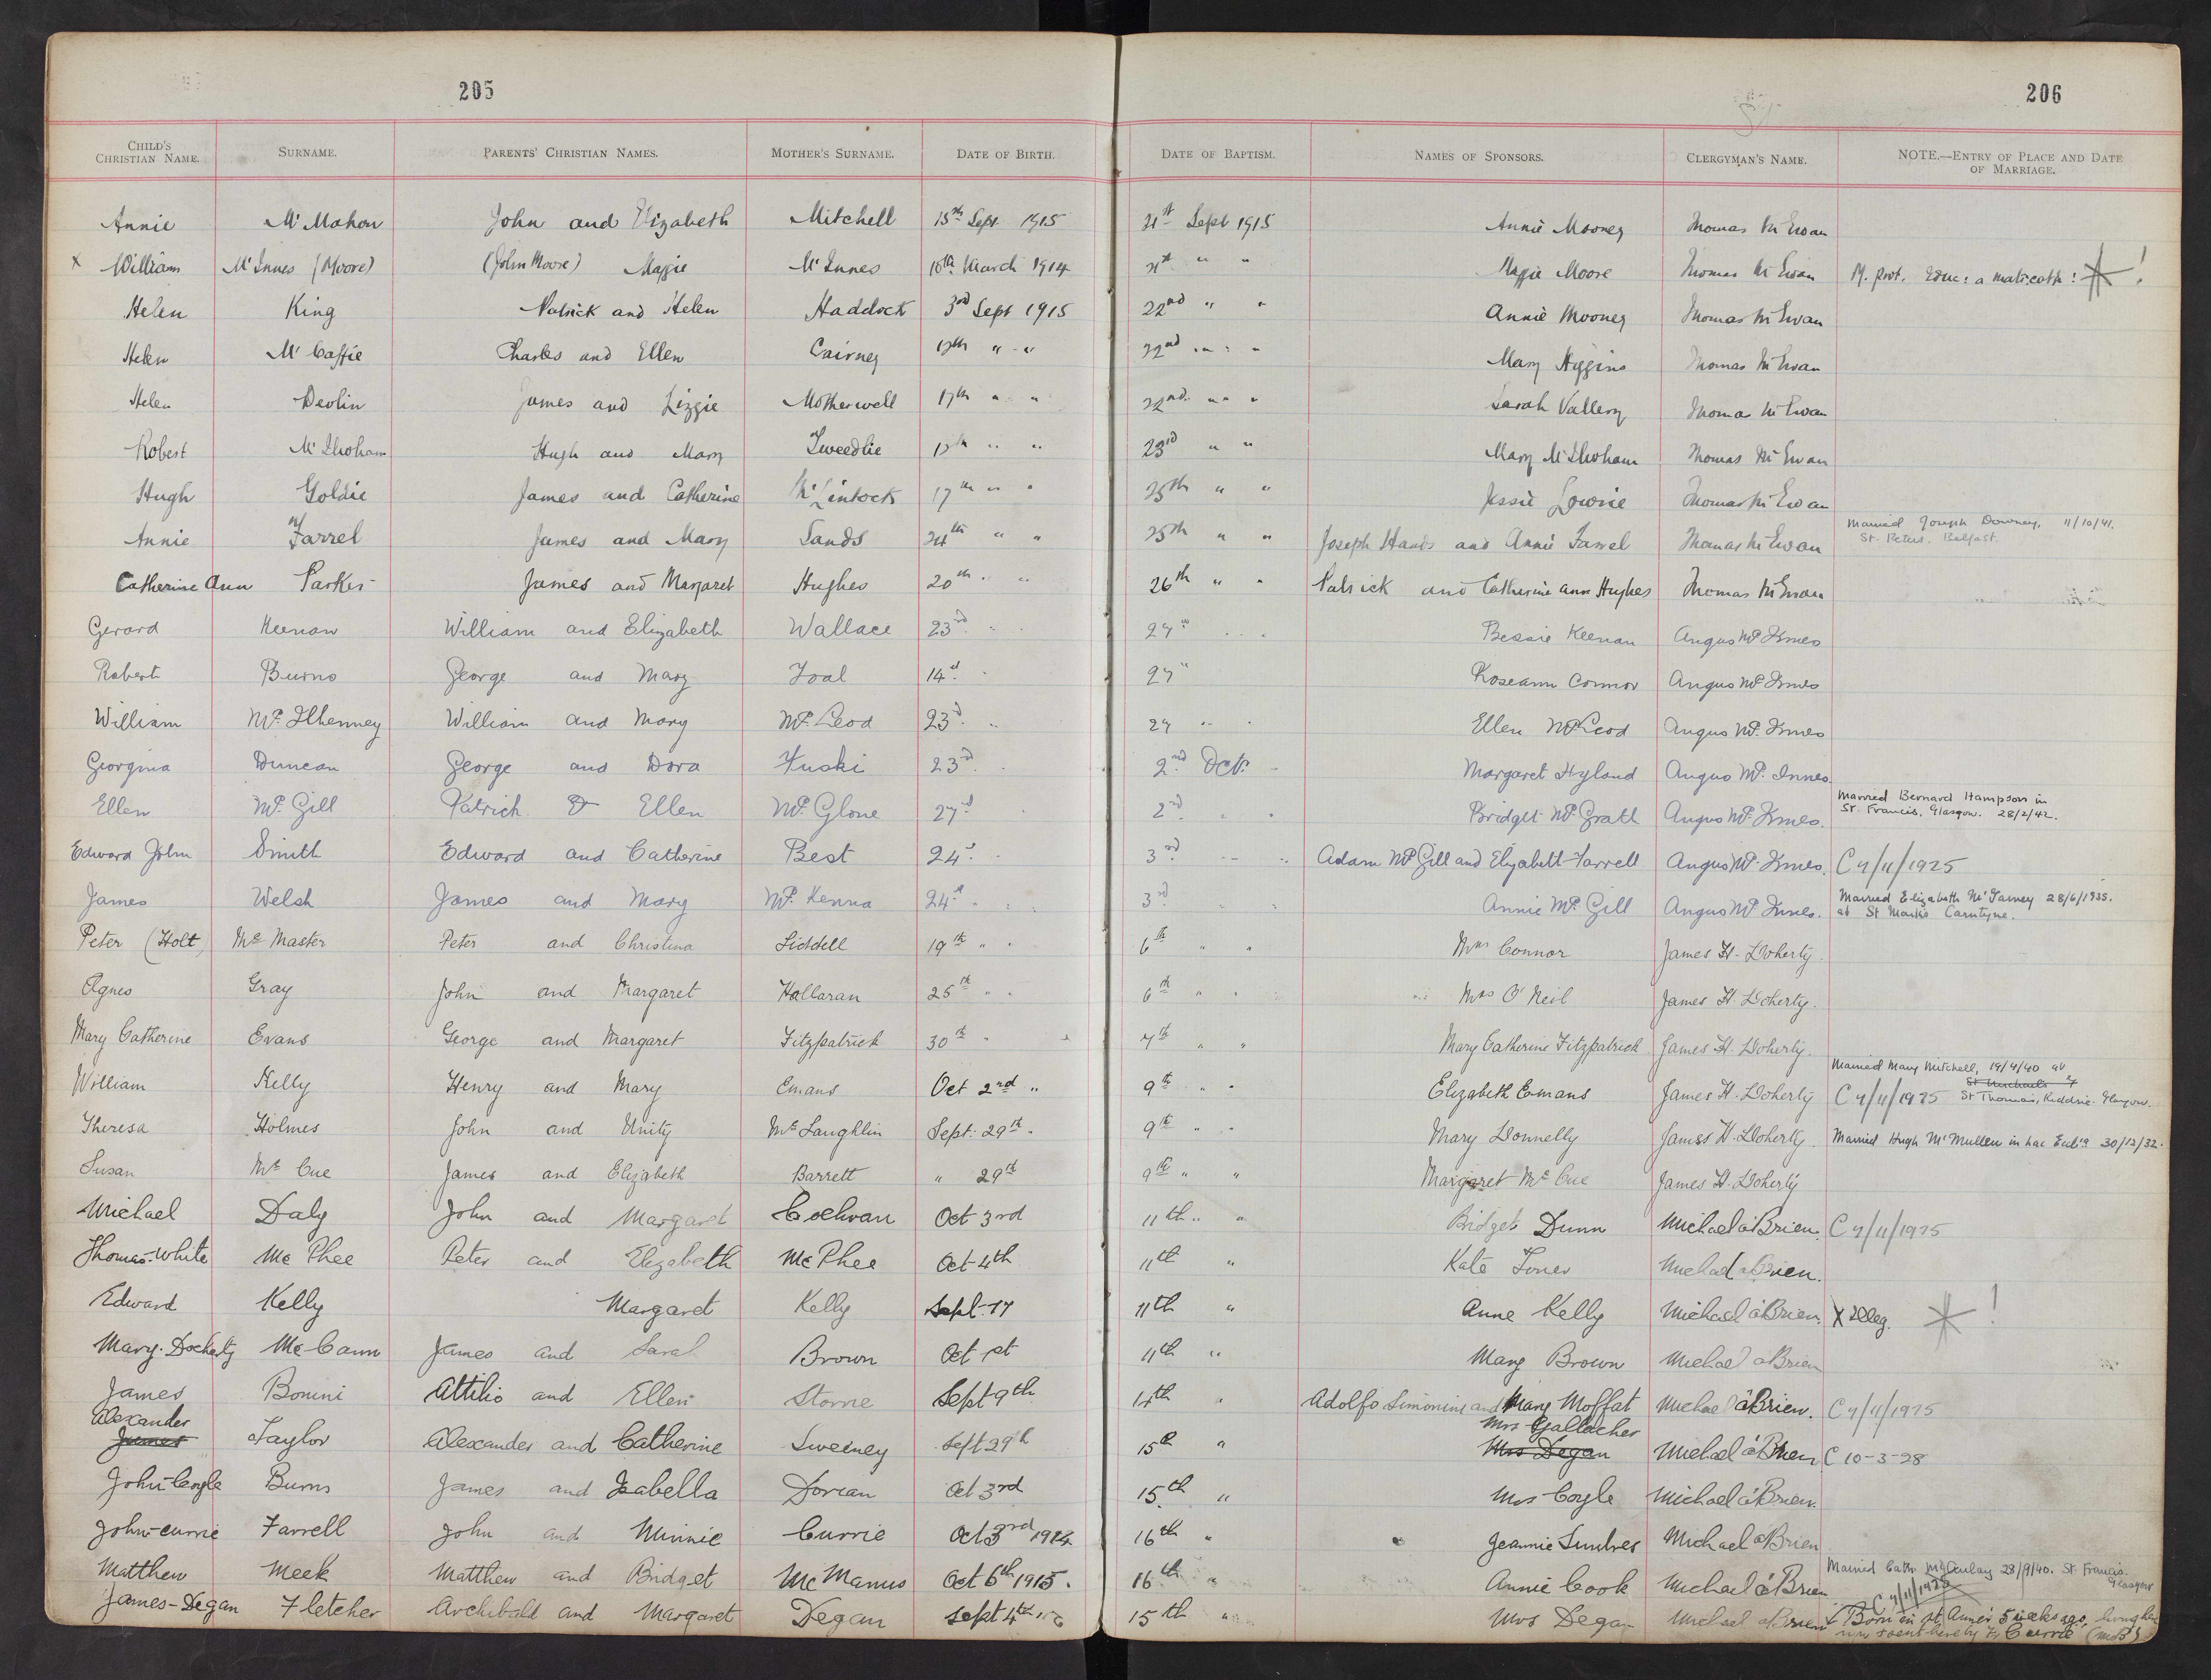 205
206
CHILD'S CHRISTIAN NAME. SURNAME. PARENTS' CHRISTIAN NAMES. MOTHER'S SURNAME. DATE OF BIRTH. DATE OF BAPTISM. NAMES OF SPONSORS. CLERGYMAN'S NAME. NOTE.—ENTRY OF PLACE AND DATE OF MARRIAGE.
Annie McMahon John and Elizabeth Mitchell 15th Sept 1915 21st Sept 1915 Annie Mooney Thomas McEwan
x William McInnes (Moore) (John Moore) Maggie McInnes March 1914 21st " " Maggie Moore Thomas McEwan M. prot. Educ: a
Helen King Patrick and Helen Haddock 3rd Sept 1915 22nd " " Annie Mooney Thomas McEwan
Helen McCaffie Charles and Ellen Cairney " " 22nd " " Mary Higgins Thomas McEwan
Helen Devlin James and Lizzie Motherwell 17th " " 22nd " " Sarah Vallery Thomas McEwan
Robert Hugh and Mary Tweedlie " " 23rd " " Mary Thomas McEwan
Hugh Goldie James and Catherine McLintock 17th " " 25th " " Jessie Lowrie Thomas McEwan
Annie Farrel James and Mary Sands 24th " " 25th " " Joseph Hands and Annie Farrel Thomas McEwan Married Joseph Downey, 11/10/41. St. Peters. Belfast.
Catherine Ann Parker James and Margaret Hughes 20th " " 26th " " Patrick and Catherine Ann Hughes Thomas McEwan
Gerard Keenan William and Elizabeth Wallace 23rd " " 27th " " Bessie Keenan Angus McInnes
Robert Burns George and Mary Toal 14th " 27th Roseann Connor Angus McInnes
William McIlhenney William and Mary McLeod 23rd " 27 " " Ellen McLeod Angus McInnes
Georgina Duncan George and Dora 23rd " 2nd Oct. Margaret Hyland Angus McInnes
Ellen McGill Patrick & Ellen McGlone 27th 2nd " " Bridget McGrath Angus McInnes. Married Bernard Hampson in St. Francis, Glasgow. 28/2/42.
Edward John Smith Edward and Catherine Best 24th " 3rd " " Adam McGill and Elizabeth Farrell Angus McInnes. C 4/11/1925
James Welsh James and Mary McKenna 24th " " 3rd " " Annie McGill Angus McInnes. Married Elizabeth 28/6/1935. at St Marks Carntyne.
Peter (Holt) McMaster Peter and Christina Liddell 19th " " 6th " " Mrs Connor James H. Doherty.
Agnes Gray John and Margaret Hallaran 25th " " 6th " " Mrs O'Neil James H. Doherty.
Mary Catherine Evans George and Margaret Fitzpatrick 30th " " 7th " " Mary Catherine Fitzpatrick James H. Doherty.
William Kelly Henry and Mary Emans Oct 2nd " 9th " " Elizabeth Emans James H. Doherty Married Mary Mitchell, 19/4/40 at St Michaels St Thomas, Riddrie. Glasgow. C 4/11/1925
Theresa Holmes John and Unity McLaughlin Sept. 29th " 9th " " Mary Donnelly James H. Doherty. Married Hugh McMullen in hac Eccl'a 30/12/32.
Susan McCue James and Elizabeth Barrett " 29th 9th " " Margaret McCue James H. Doherty
Michael Daly John and Margaret Cochran Oct 3rd 11th " " Bridget Dunn Michael O'Brien. C 4/11/1925
Thomas-White McPhee Peter and Elizabeth McPhee Oct 4th 11th " Kate Toner Michael O'Brien.
Edward Kelly Margaret Kelly Sept. 17 11th " Anne Kelly Michael O'Brien. X Illeg. !
Mary-Docherty McCann James and Sarah Brown Oct 1st 11th " Mary Brown Michael O'Brien
James Bonini Attilio and Ellen Storrie Sept 9th 14th " Adolfo Simonini and Mary Moffat Michael O'Brien. C 4/11/1925
Alexander James Taylor Alexander and Catherine Sweeney Sept 29th 15th " Mrs Gallacher Mrs Degan Michael O'Brien C 10-3-28
John-Coyle Burns James and Isabella Dorrian Oct 3rd 15th " Mrs Coyle Michael O'Brien
John-Currie Farrell John and Minnie Currie Oct 3rd 1914 16th " Jeannie Michael O'Brien
Matthew Meek Matthew and Bridget McManus Oct 6th 1915. 16th " Annie Cook Michael O'Brien Married Cath. McAulay 28/9/40. St. Francis. Glasgow C 4/11/1925
James-Degan Fletcher Archibald and Margaret Degan Sept 4th 15th " Mrs Degan Michael O'Brien Born in St. Anne's 5 weeks ago, Currie